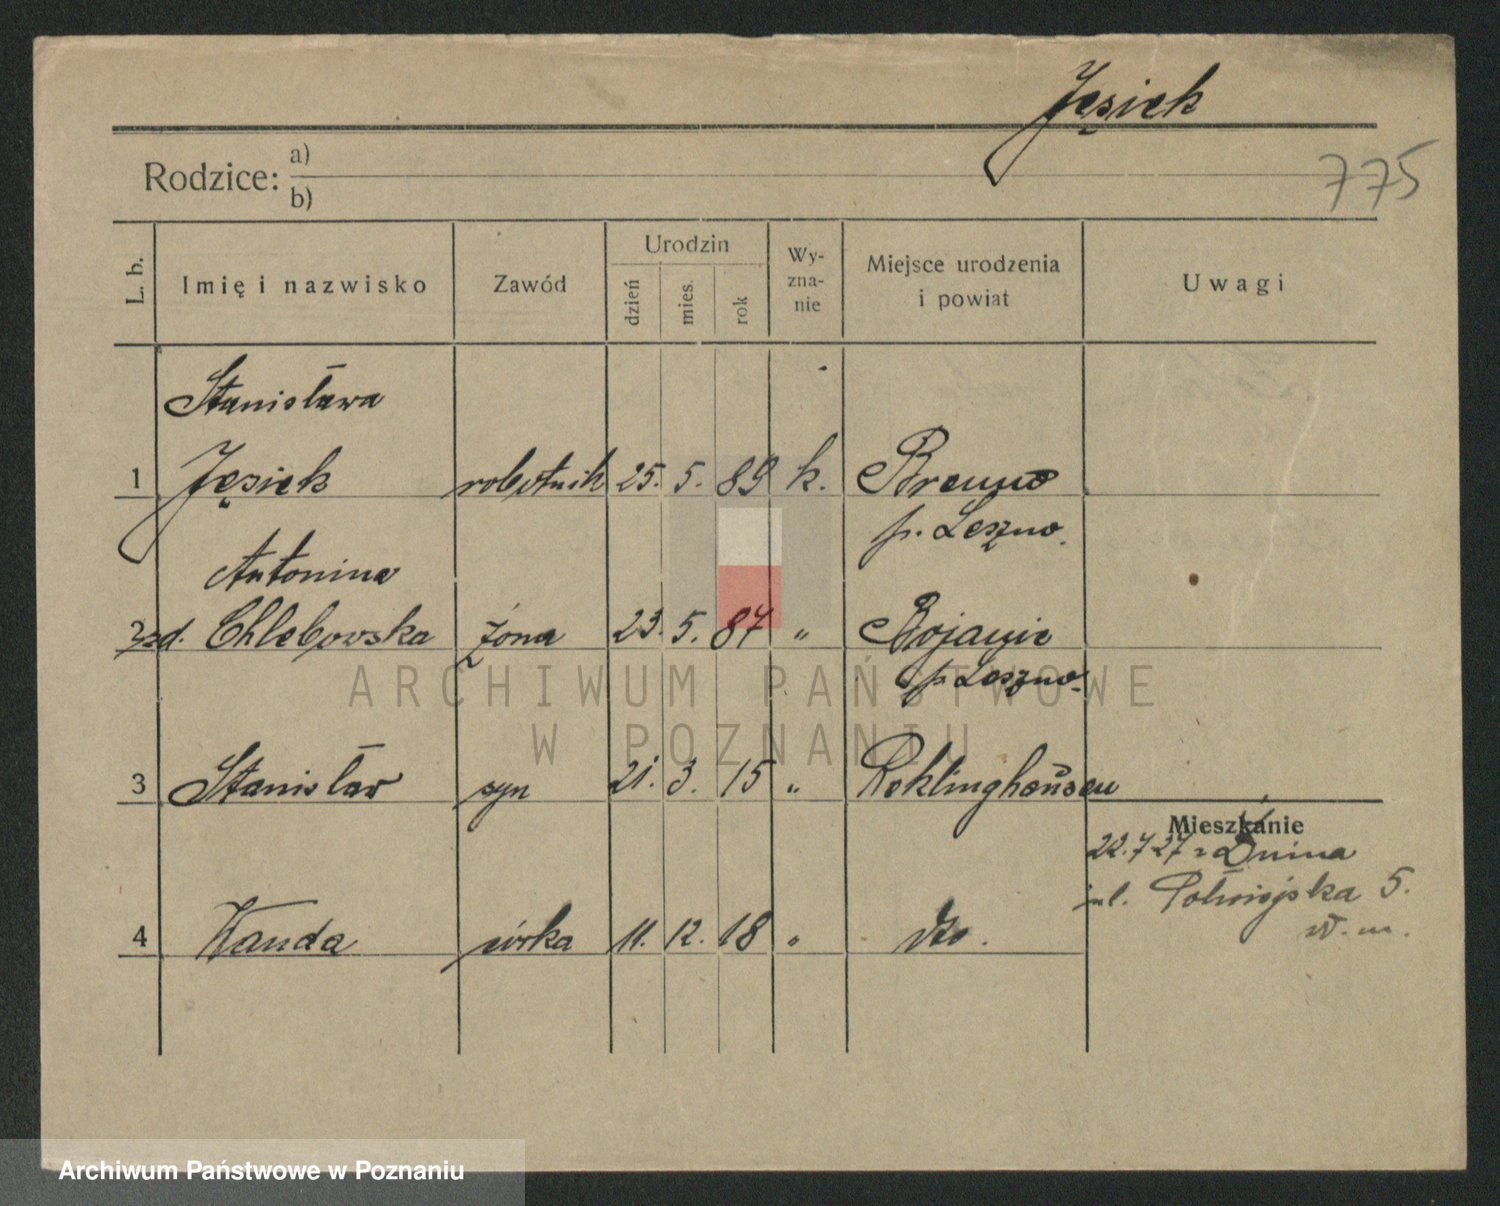 Jęsiek
775
Rodzice: a)
b)
L. b. Imię i nazwisko Zawód Urodzin dzień mies. rok Wy-zna-nie Miejsce urodzenia i powiat Uwagi
Stanisława
1 Jęsiek robotnik 25. 5. 89 k. Brenno
p. Leszno.
Antonina
2 zd. Chlebowska żona 23. 5. 87 " Bojanic
p. Leszno.
3 Stanisław syn 21. 3. 15 " Reklinghausen
Mieszkanie
22.7.27 z
ul. Półwiejska 5.
4 Wanda córka 11. 12. 18 " dto.
ARCHIWUM PAŃSTWOWE
W POZNANIU
Archiwum Państwowe w Poznaniu